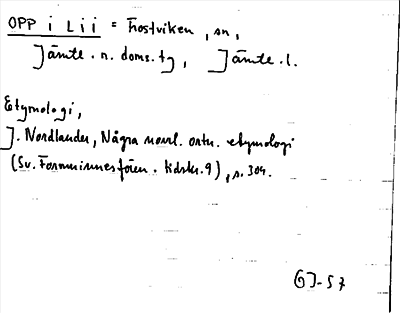 OPP i Lii = Frostviken, sn,
Jämte. n. doms. tg, Jämte. l.
Etymologi,
J. Nordlander, Några norrl. ortn. etymologi
(Sv. Fornminnesfören. tidskr. 9), s. 304.
GJ-57